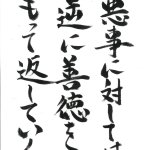 悪事に対しては
逆に善徳を
もって返してい